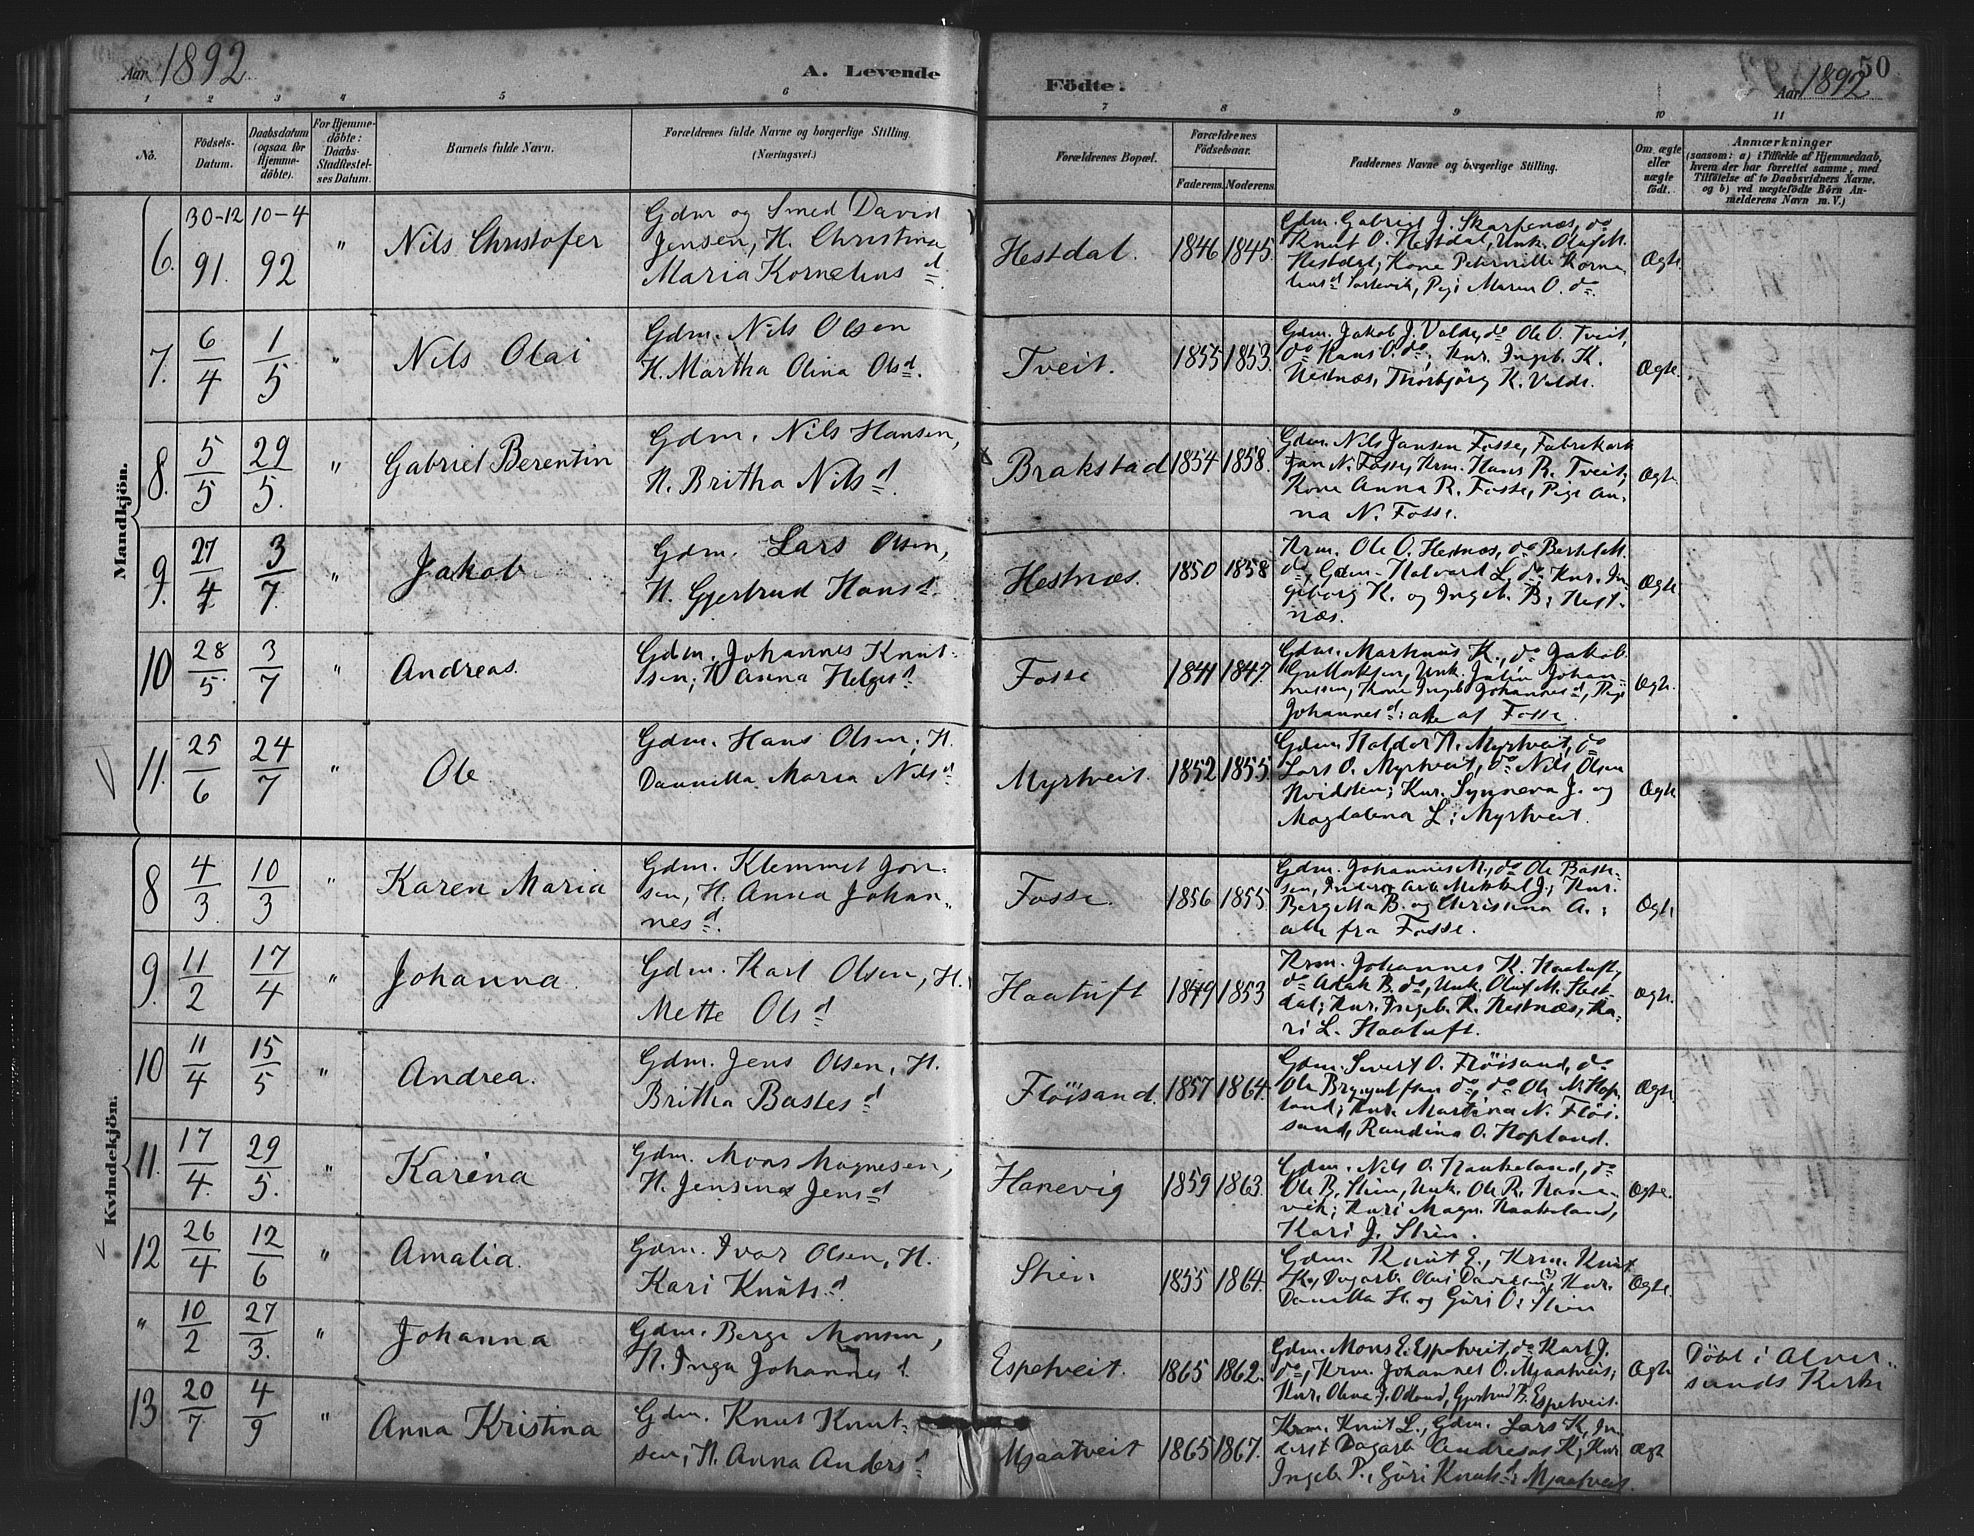 Aar 1892
A. Levende
Födte.
50
Aar 1892
1 2 3 4 5 6 7 8 9 10 11
No.
Födsels-
Datum.
Daabsdatum
(ogsaa for
Hjemme-
döbte).
For Hjemme-
döbte:
Daabs-
Stadfæstel-
ses Datum.
Barnets fulde Navn.
Forældrenes fulde Navne og borgerlige Stilling.
(Næringsvei.)
Forældrenes Bopæl.
Forældrenes
Födselsaar.
Faderens. Moderens.
Faddernes Navne og borgerlige Stilling.
Om ægte
eller
uægte
födt.
Anmærkninger
(saasom: a) i Tilfælde af Hjemmedaab,
hvem der har forrettet samme, med
Tilföielse af to Daabsvidners Navne,
og b) ved uægtefödte Börn An-
melderens Navn m. V.)
Mandkjön.
6. 30-12 91. 10-4 92 " Nils Christofer
Gdm og Smed David
Jensen, H. Christina
Maria Kornelius d.
Hestdal. 1846 1845.
Gdm. Gabriel J. Skarpenæs, do
Knut O. Hestdal, Unk. Olaf M.
Hestdal; Kone Peternille Korne
lius d, Pige Maren O. do
Ægte
7. 6/4 1/5 " Nils Olai
Gdm. Nils Olsen
H. Martha Olina Ols d.
Tveit. 1855 1853.
Gdm. Jakob J. Valde, do Ole O. Tveit,
do Hans O. do; Kur. Ingeb. K.
Hestnæs, Thorbjörg K. Valde.
Ægte.
8. 5/5 29/5. " Gabriel Berentin
Gdm. Nils Hansen,
H. Britha Nils d.
Brakstad 1854 1858.
Gdm. Nils Jansen Fosse, Fabrikarb
Jan N. Fosse, Krm. Hans R. Tveit;
Kone Anna R. Fosse, Pige An-
na N. Fosse.
Ægte
9. 27/4 3/7. " Jakob
Gdm. Lars Olsen,
H. Gjertrud Hans d.
Hestnæs. 1850 1858
Krm. Ole O. Hestnæs, do Bertel M.
do, Gdm. Halvard L. do. Kur. In-
geborg K. og Ingeb. B. Hest-
næs.
Ægte
10 28/5. 3/7 " Andreas.
Gdm. Johannes Knut-
sen; H Anna Helges d
Fosse 1841 1847.
Gdm. Markus K., do Jakob
Unk. Johan-
nessen, Kone Ingeb Johannes d, Pige
Johannes d: alle af Fosse.
Ægte.
11. 25/6 24/7 " Ole
Gdm. Hans Olsen, H.
Daniella Maria Nils d
Myrtveit. 1852 1855.
Gdm. Haldor H. Myrtveit, do
Lars O. Myrtveit, do Nils Olsen
Hvidsten; Kur. Synneva J. og
Magdalena L: Myrtveit.
Ægte
Kvindekjön.
8 4/3. 10/3 " Karen Maria
Gdm. Klemmet Jon-
sen, H. Anna Johan-
nes d.
Fosse. 1856 1855.
Gdm. Johannes M., do Ole Baste-
sen, Mikkel J.; Kur.
Bergitta B. og Christina A.:
alle fra Fosse.
Ægte
9. 11/2 17/4 " Johanna
Gdm. Karl Olsen, H.
Mette Ols d
Haatuft 1849 1853
Krm. Johannes K. Haatuft,
do Adak B. do, Unk. Olaf M. Hest-
dal; Kur. Ingeb. K. Hestnæs, Ka-
ri L. Haatuft.
Ægte.
10 11/4 15/5 " Andrea.
Gdm. Jens Olsen, H.
Britha Bastes d
Flöisand. 1857 1864.
Gdm. Sivert O. Flöisand, do
Ole Brynjulfsen do, do Ole N. Hop-
land; Kur. Martina N. Flöi-
sand, Randina O. Hopland.
Ægte.
11. 17/4. 29/5. " Karina
Gdm. Mons Magnesen,
H. Jensina Jens d
Hanevig 1859 1863.
Gdm. Nils O. Haukeland, do
Ole B. Stien, Unk. Ole R. Hane-
vik; Kari Magn. Haukeland,
Kari J. Stien.
Ægte.
12 26/4 12/6 " Amalia.
Gdm. Ivar Olsen, H.
Kari Knuts d
Stien 1855 1864.
Gdm. Knut E., Krm. Knut
K., Dagarb. Olai Davidsen, Kur.
Daniella H. og Göri O: Stien
Ægte.
" 10/2 27/3. " Johanna
Gdm. Berge Monsen,
H. Inga Johannes d.
Espetveit. 1865 1862.
Gdm. Mons E. Espetveit, do Karl J.
do, Krm. Johannes O. Mjaatveit;
Kur. Olina J. Odland, Gjertrud B. Espetveit.
Ægte
Döbt i Alver-
sunds Kirke
13 20/7 4/9 " Anna Kristina
Gdm. Knut Knut-
sen, H. Anna Anders d
Mjaatveit 1865 1867.
Krm. Knut L., Gdm. Lars K, In-
derst Dagarb Andreas K, Kur.
Ingeb P., Göri Knuts d: Mjaatveit.
Ægte